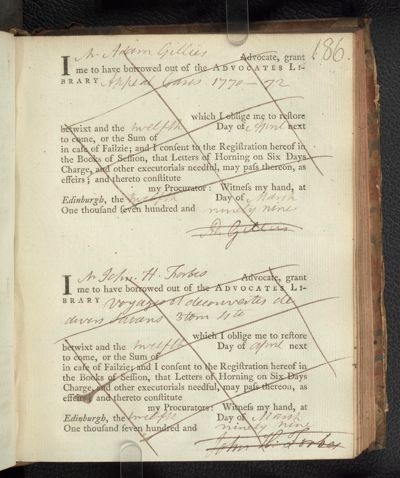 186.
I Mr Adam Gillies Advocate, grant
me to have borrowed out of the ADVOCATES LI-
BRARY Appeal Cases 1770-72
which I oblige me to reſtore
betwixt and the twelfth Day of April next
to come, or the Sum of
in caſe of Failzie; and I conſent to the Regiſtration hereof in
the Books of Seſſion, that Letters of Horning on Six Days
Charge, and other executorials needful, may paſs thereon, as
effeirs; and thereto conſtitute
my Procurator: Witneſs my hand, at
Edinburgh, the twelfth Day of March
One thouſand ſeven hundred and ninety nine
Ad Gillies
I Mr John H. Forbes Advocate, grant
me to have borrowed out of the ADVOCATES LI-
BRARY Voyages & decouvertes de
divers Savans 3 tom 4to
which I oblige me to reſtore
betwixt and the twelfth Day of April next
to come, or the Sum of
in caſe of Failzie; and I conſent to the Regiſtration hereof in
the Books of Seſſion, that Letters of Horning on Six Days
Charge, and other executorials needful, may paſs thereon, as
effeirs; and thereto conſtitute
my Procurators: Witneſs my hand, at
Edinburgh, the twelfth Day of March
One thouſand ſeven hundred and ninety nine
John H. Forbes